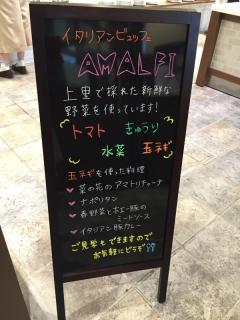 イタリアンビュッフェ
AMALFI
上里で採れた新鮮な
野菜を使っています!
トマト きゅうり
水菜 玉ネギ
玉ネギを使った料理
菜の花のアマトリチャーナ
ナポリタン
春野菜とホエー豚の
ミートソース
イタリアン豚カレー
ご見学もできますので
お気軽にどうぞ